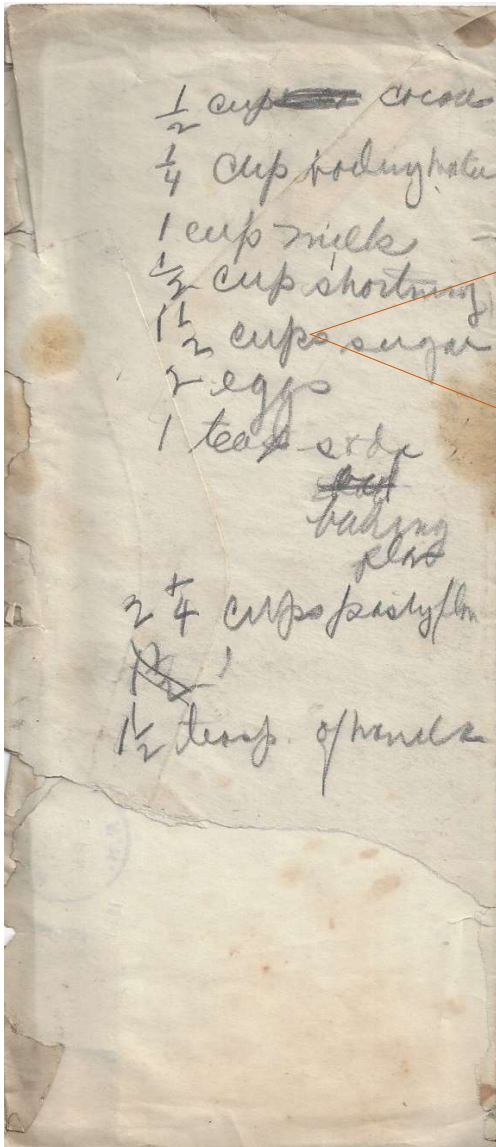 ½ cup cocoa
¼ cup boiling water
1 cup milk
½ cup shortning
1½ cups sugar
2 eggs
1 teas soda
baking
2 ¼ cups pastry flour
1½ teasp. of vanila